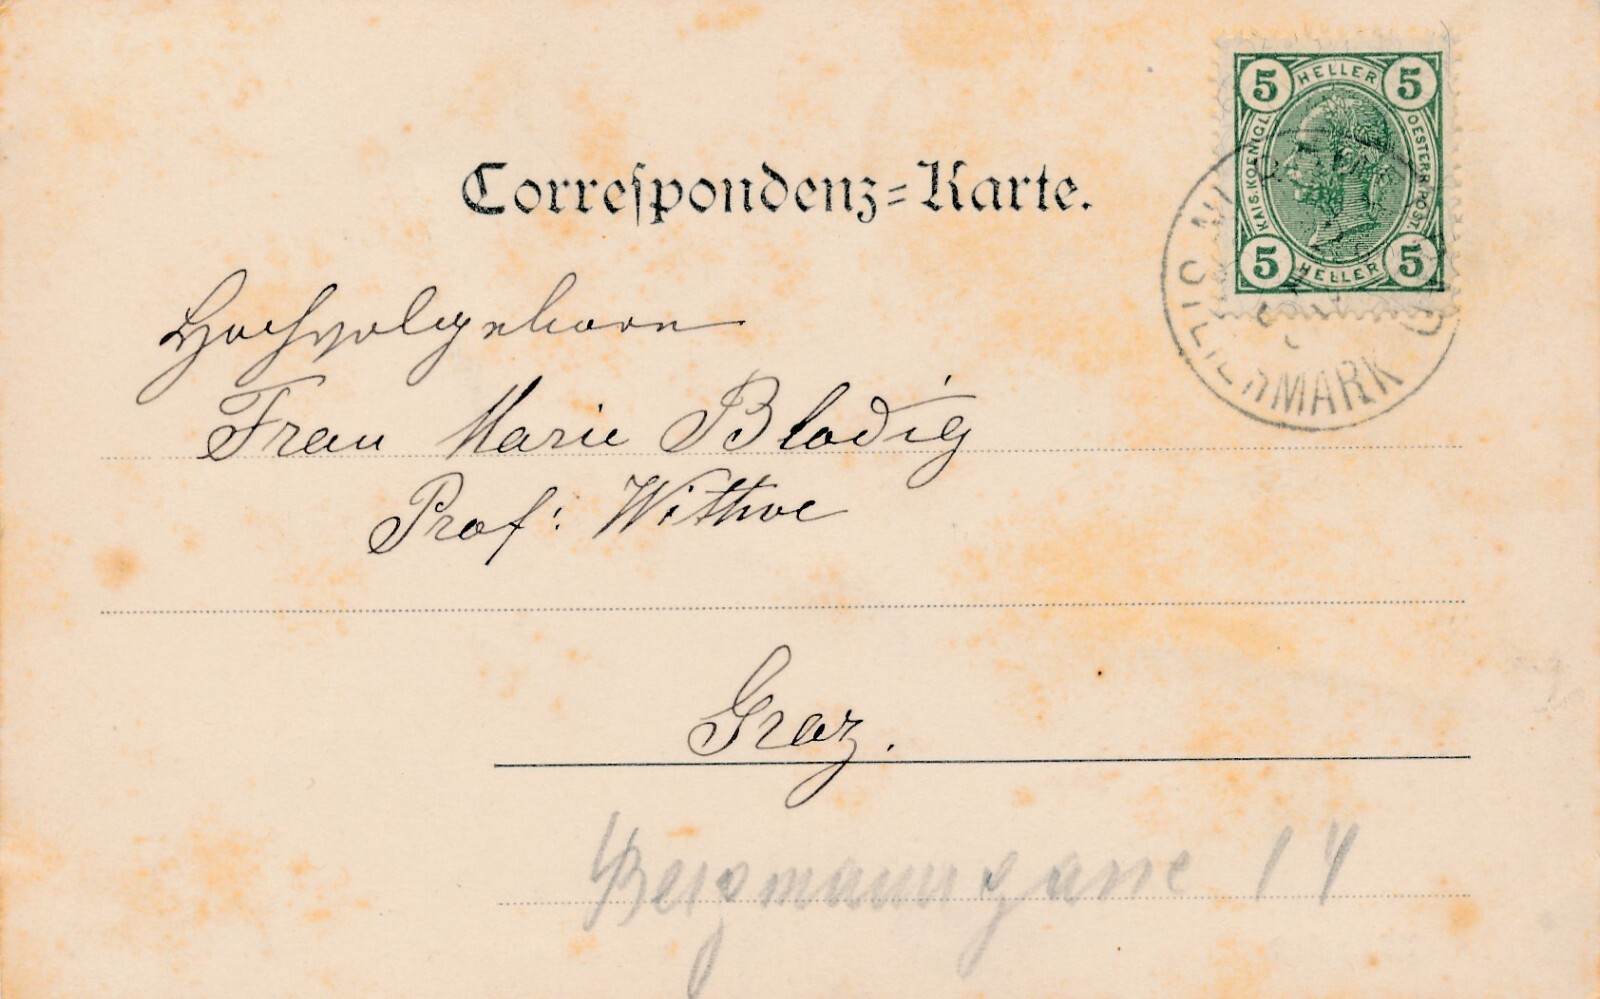 Correspondenz-Karte.
5 HELLER 5
KAIS. KOENIGL.
OESTERR. POST.
5 HELLER 5
STEIERMARK
Hochwolgeboren
Frau Marie Bladig
Prof: Wittwe
Graz.
Bergmanngasse 14